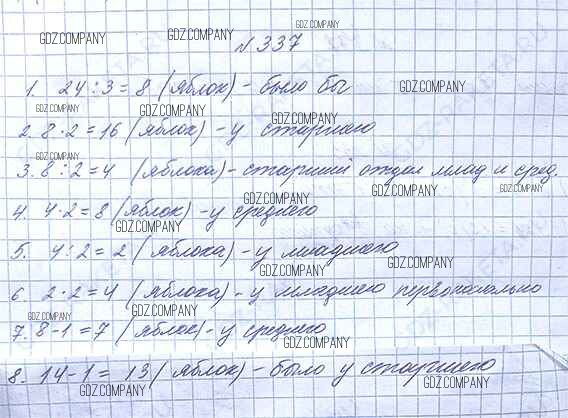 GDZ.COMPANY GDZ.COMPANY GDZ.COMPANY
№ 337
1. 24 : 3 = 8 (яблок) - было бы GDZ.COMPANY
GDZ.COMPANY GDZ.COMPANY GDZ.COMPANY
2. 8 · 2 = 16 (яблок) - у старшего
GDZ.COMPANY
3. 8 : 2 = 4 (яблока) - старший отдал млад и сред.
GDZ.COMPANY GDZ.COMPANY GDZ.COMPANY
4. 4 · 2 = 8 (яблок) - у среднего
GDZ.COMPANY
5. 4 : 2 = 2 (яблока) - у младшего
GDZ.COMPANY GDZ.COMPANY
6. 2 · 2 = 4 (яблока) - у младшего первоначально
GDZ.COMPANY GDZ.COMPANY
7. 8 - 1 = 7 (яблок) - у среднего
GDZ.COMPANY
8. 14 - 1 = 13 (яблок) - было у старшего
GDZ.COMPANY GDZ.COMPANY